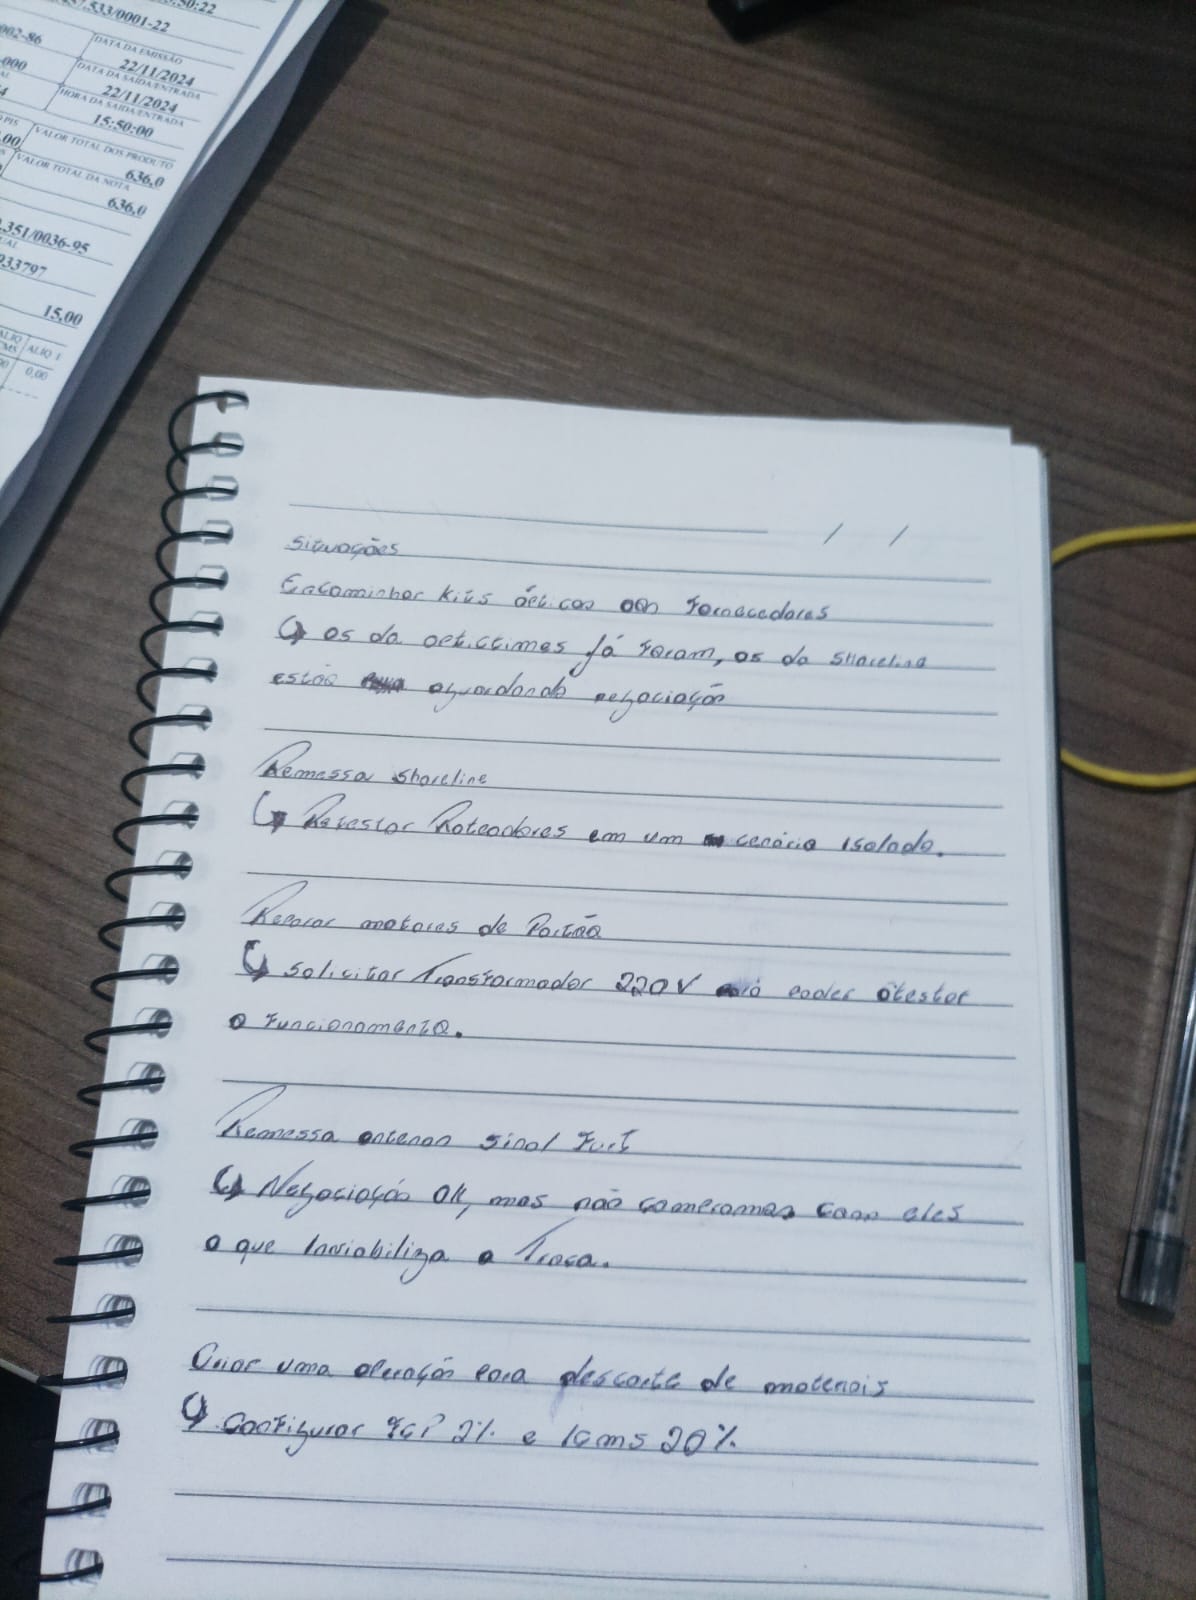 50:22
.533/0001-22
002-86
DATA DA EMISSÃO
22/11/2024
-000
DATA DA SAÍDA/ENTRADA
22/11/2024
HORA DA SAÍDA/ENTRADA
15:50:00
VALOR TOTAL DOS PRODUTO
636,0
VALOR TOTAL DA NOTA
636,0
.351/0036-95
933797
15,00
ALÍQ I
0,00
/ /
Situações
Encaminhar kits ópticos aos fornecedores
os da já foram, os da Shoreline
estão aguardando negociação
Remessa Shoreline
Retestar Roteadores em um cenário isolado.
Reparar motores de Portão
Solicitar Transformador 220V para poder testar
o funcionamento.
Remessa antenas sinal
Negociação OK, mas não compramos com eles
o que inviabiliza a Troca.
Criar uma operação para descarte de materiais
Configurar FCP 2% e Icms 20%